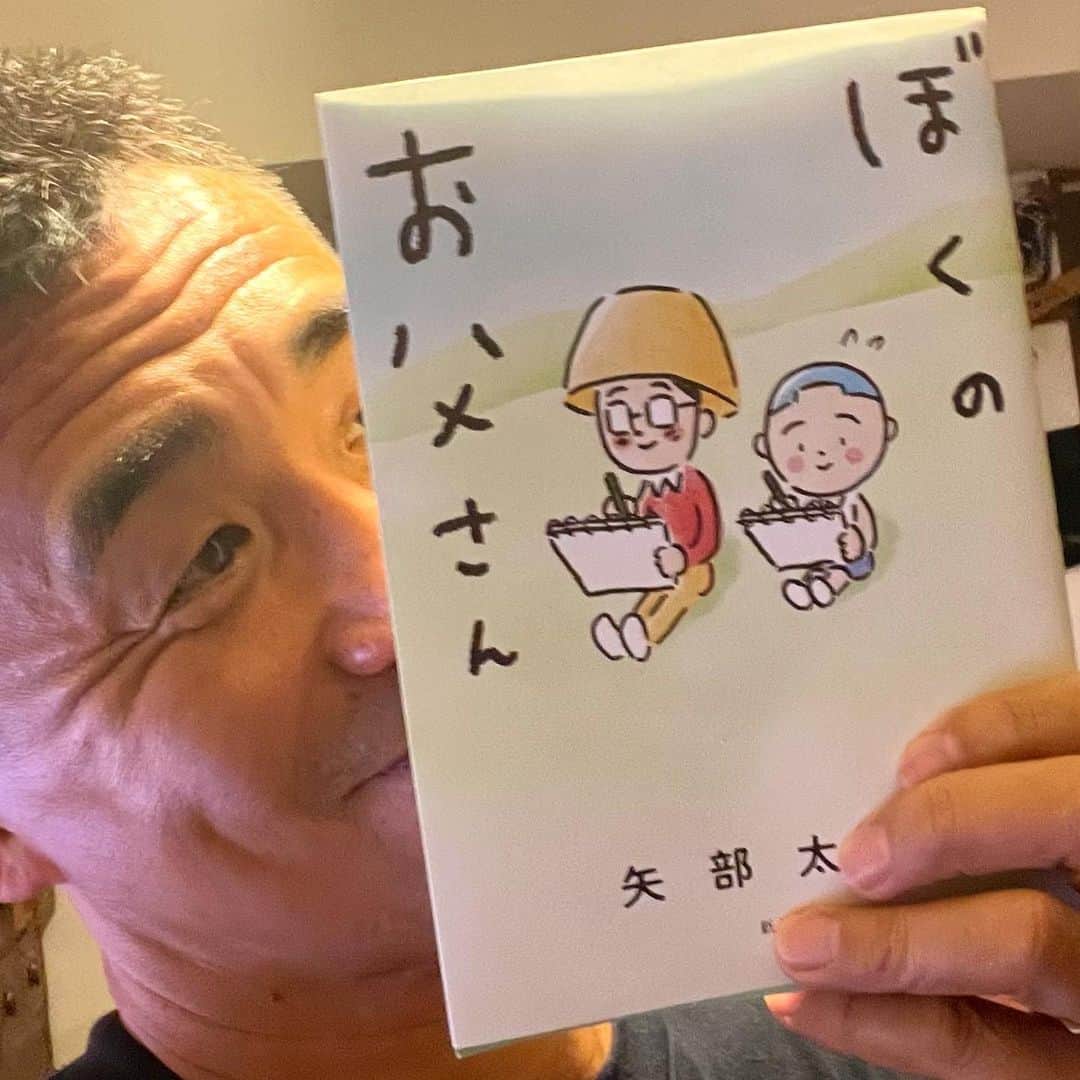 ぼくの
お父さん
矢部太